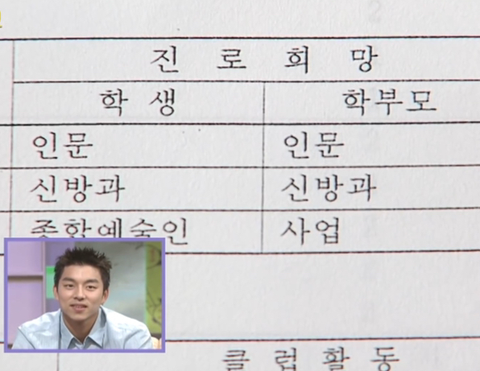 진로희망
학생 학부모
인문 인문
신방과 신방과
종합예술인 사업
클럽활동